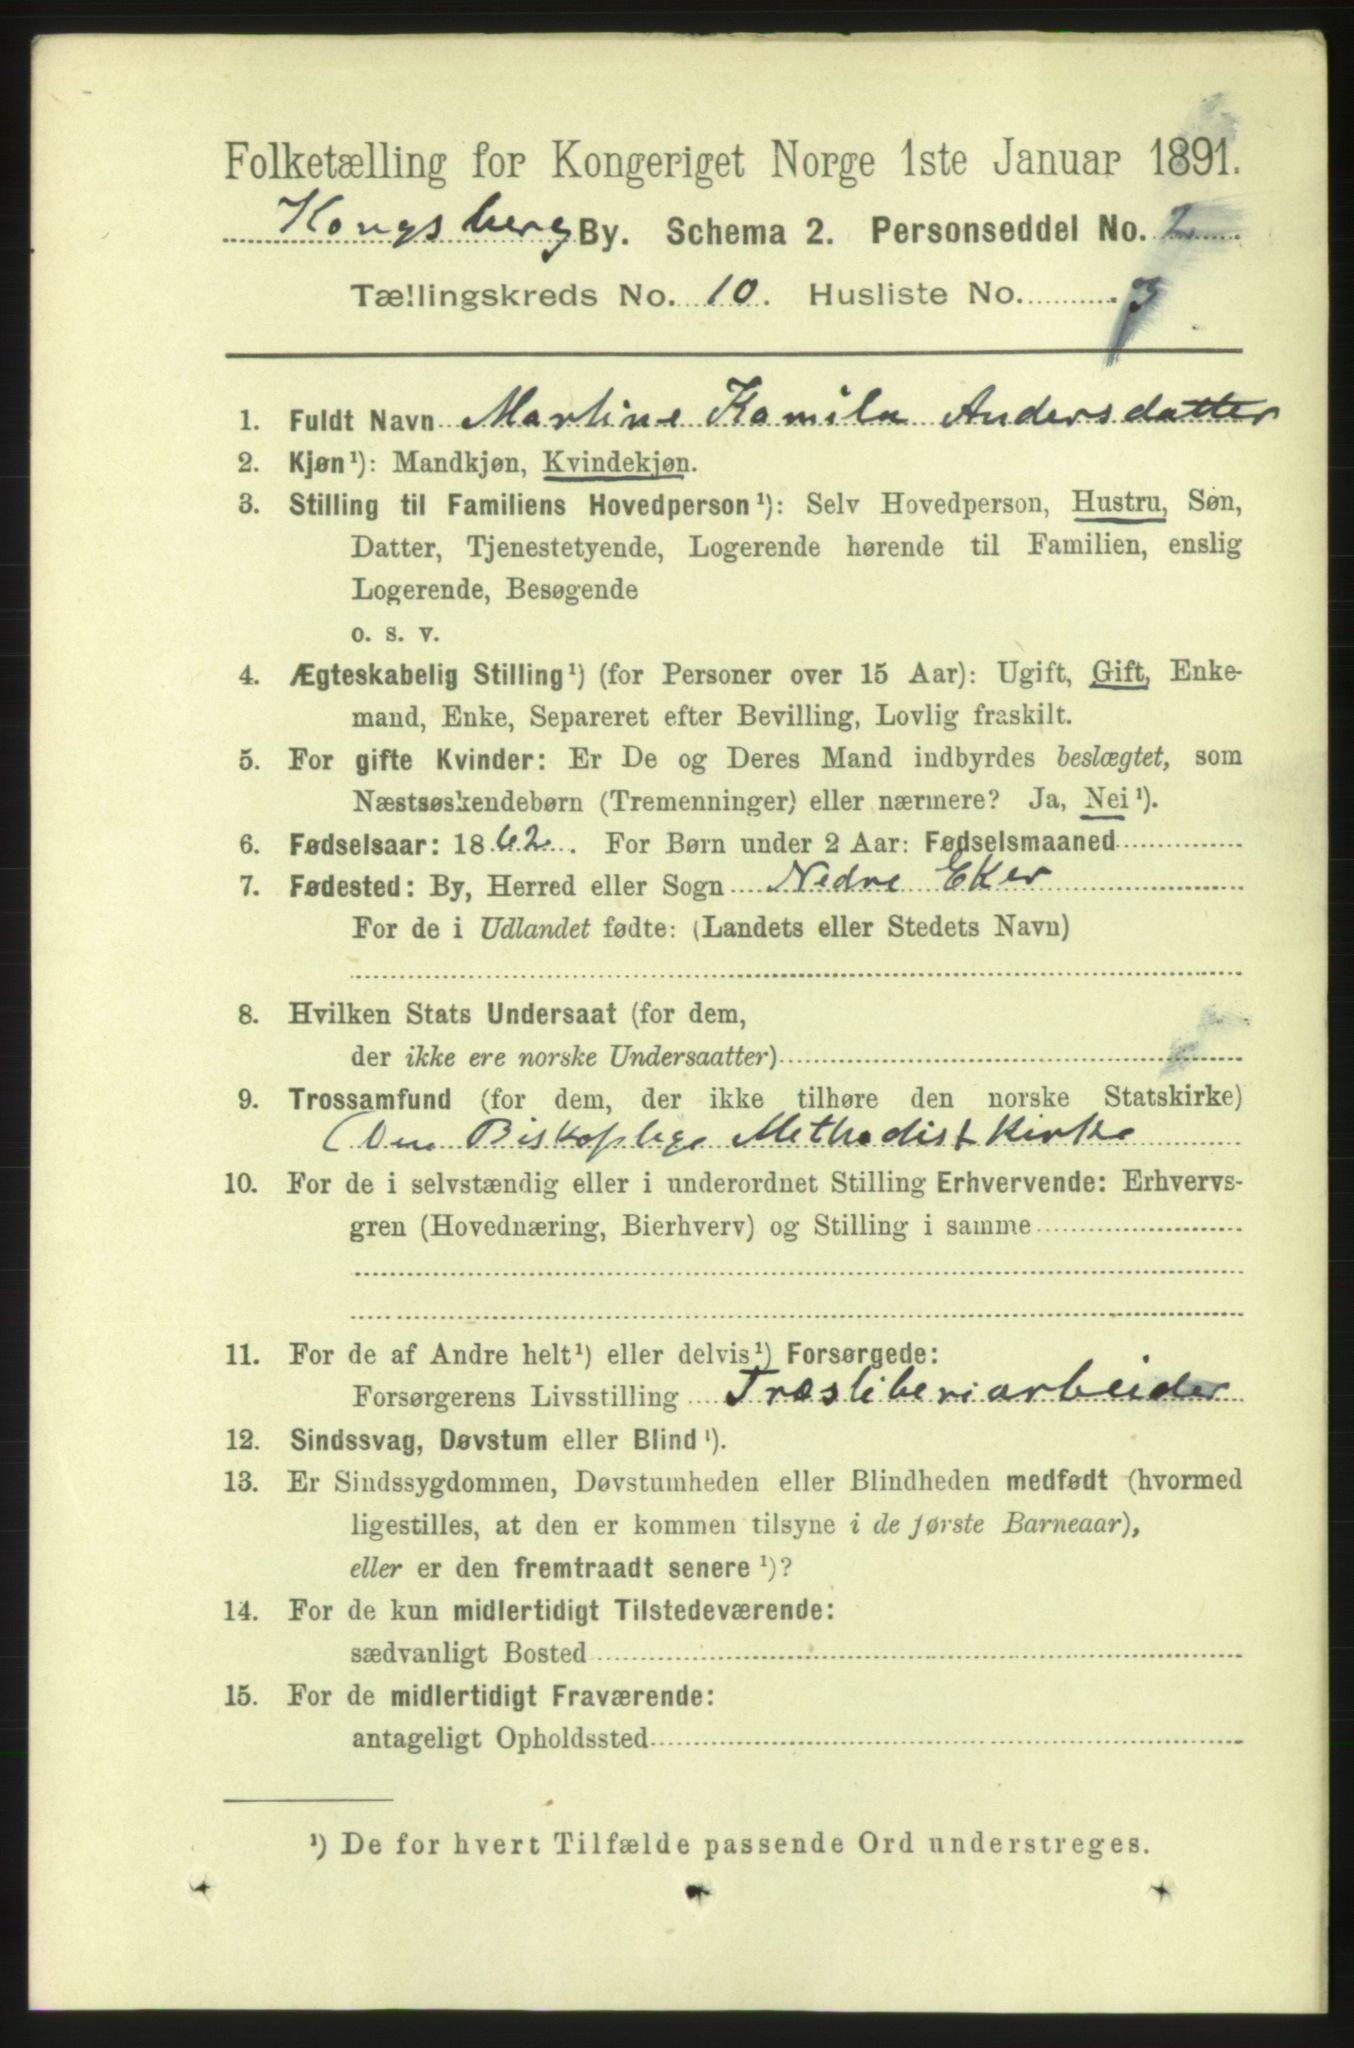 Folketælling for Kongeriget Norge 1ste Januar 1891.
Kongsberg By. Schema 2. Personseddel No. 2
Tællingskreds No. 10. Husliste No. 3
1. Fuldt Navn Martine Kamila Andersdatter
2. Kjøn¹): Mandkjøn, Kvindekjøn.
3. Stilling til Familiens Hovedperson¹): Selv Hovedperson, Hustru, Søn,
Datter, Tjenestetyende, Logerende hørende til Familien, enslig
Logerende, Besøgende
o. s. v.
4. Ægteskabelig Stilling¹) (for Personer over 15 Aar): Ugift, Gift, Enke-
mand, Enke, Separeret efter Bevilling, Lovlig fraskilt.
5. For gifte Kvinder: Er De og Deres Mand indbyrdes beslægtet, som
Næstsøskendebørn (Tremenninger) eller nærmere? Ja, Nei¹).
6. Fødselsaar: 1862. For Børn under 2 Aar: Fødselsmaaned
7. Fødested: By, Herred eller Sogn Nedre Eker
For de i Udlandet fødte: (Landets eller Stedets Navn)
8. Hvilken Stats Undersaat (for dem,
der ikke ere norske Undersaatter)
9. Trossamfund (for dem, der ikke tilhøre den norske Statskirke)
(Den Biskoplige Methodist kirke
10. For de i selvstændig eller i underordnet Stilling Erhvervende: Erhvervs-
gren (Hovednæring, Bierhverv) og Stilling i samme
11. For de af Andre helt¹) eller delvis¹) Forsørgede:
Forsørgerens Livsstilling Træsliberiarbeider
12. Sindssvag, Døvstum eller Blind¹).
13. Er Sindssygdommen, Døvstumheden eller Blindheden medfødt (hvormed
ligestilles, at den er kommen tilsyne i de første Barneaar),
eller er den fremtraadt senere¹)?
14. For de kun midlertidigt Tilstedeværende:
sædvanligt Bosted
15. For de midlertidigt Fraværende:
antageligt Opholdssted
¹) De for hvert Tilfælde passende Ord understreges.